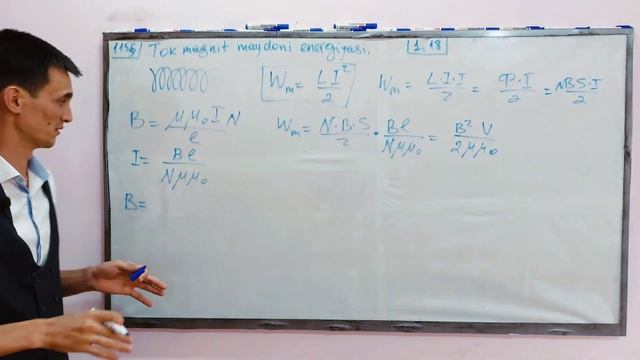 115§/ Tok magnit maydoni energiyasi. 1,18
Wₘ = LI²/2 Wₘ = L·I·I/2 = Φ·I/2 = NBS·I/2
B = μμ₀I/ℓ N Wₘ = N·B·S/2 · Bℓ/Nμμ₀ = B²V/2μμ₀
I = Bℓ/Nμμ₀
B =